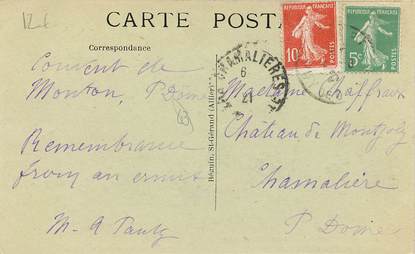 12 €
CARTE POSTALE
Correspondance
RÉPUBLIQUE FRANÇAISE
10c
POSTES
RÉPUBLIQUE FRANÇAISE
5c
POSTES
CHAMALIERES
6
21
Couvent de
Monton, P Dome
Remembrance
from an
M. A
Béguin, St-Gérand (Allier)
Madame Chaffraix
Château de Montjoly
Chamalière
P. Dome